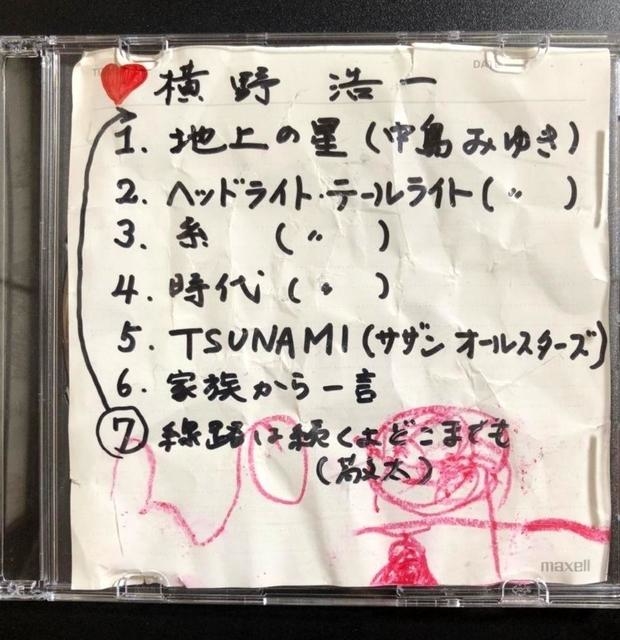 横野 浩一
1. 地上の星(中島みゆき)
2. ヘッドライト・テールライト(〃)
3. 糸 (〃)
4. 時代(〃)
5. TSUNAMI(サザンオールスターズ)
6. 家族から一言
⑦ 線路は続くよどこまでも
maxell